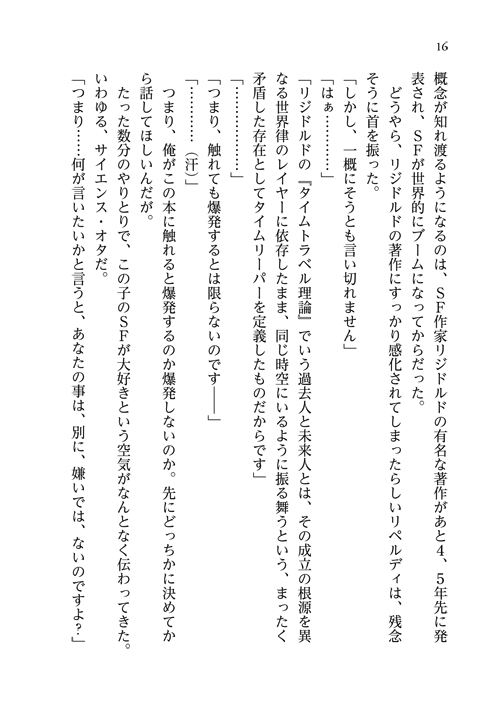 16
概念が知れ渡るようになるのは、ＳＦ作家リジドルドの有名な著作があと４、５年先に発
表され、ＳＦが世界的にブームになってからだった。
　どうやら、リジドルドの著作にすっかり感化されてしまったらしいリペルディは、残念
そうに首を振った。
「しかし、一概にそうとも言い切れません」
「はぁ…………」
「リジドルドの『タイムトラベル理論』でいう過去人と未来人とは、その成立の根源を異
なる世界律のレイヤーに依存したまま、同じ時空にいるように振る舞うという、まったく
矛盾した存在としてタイムリーパーを定義したものだからです」
「………………」
「つまり、触れても爆発するとは限らないのです――」
「…………（汗）」
　つまり、俺がこの本に触れると爆発するのか爆発しないのか。先にどっちかに決めてか
ら話してほしいんだが。
　たった数分のやりとりで、この子のＳＦが大好きという空気がなんとなく伝わってきた。
いわゆる、サイエンス・オタだ。
「つまり……何が言いたいかと言うと、あなたの事は、別に、嫌いでは、ないのですよ？」